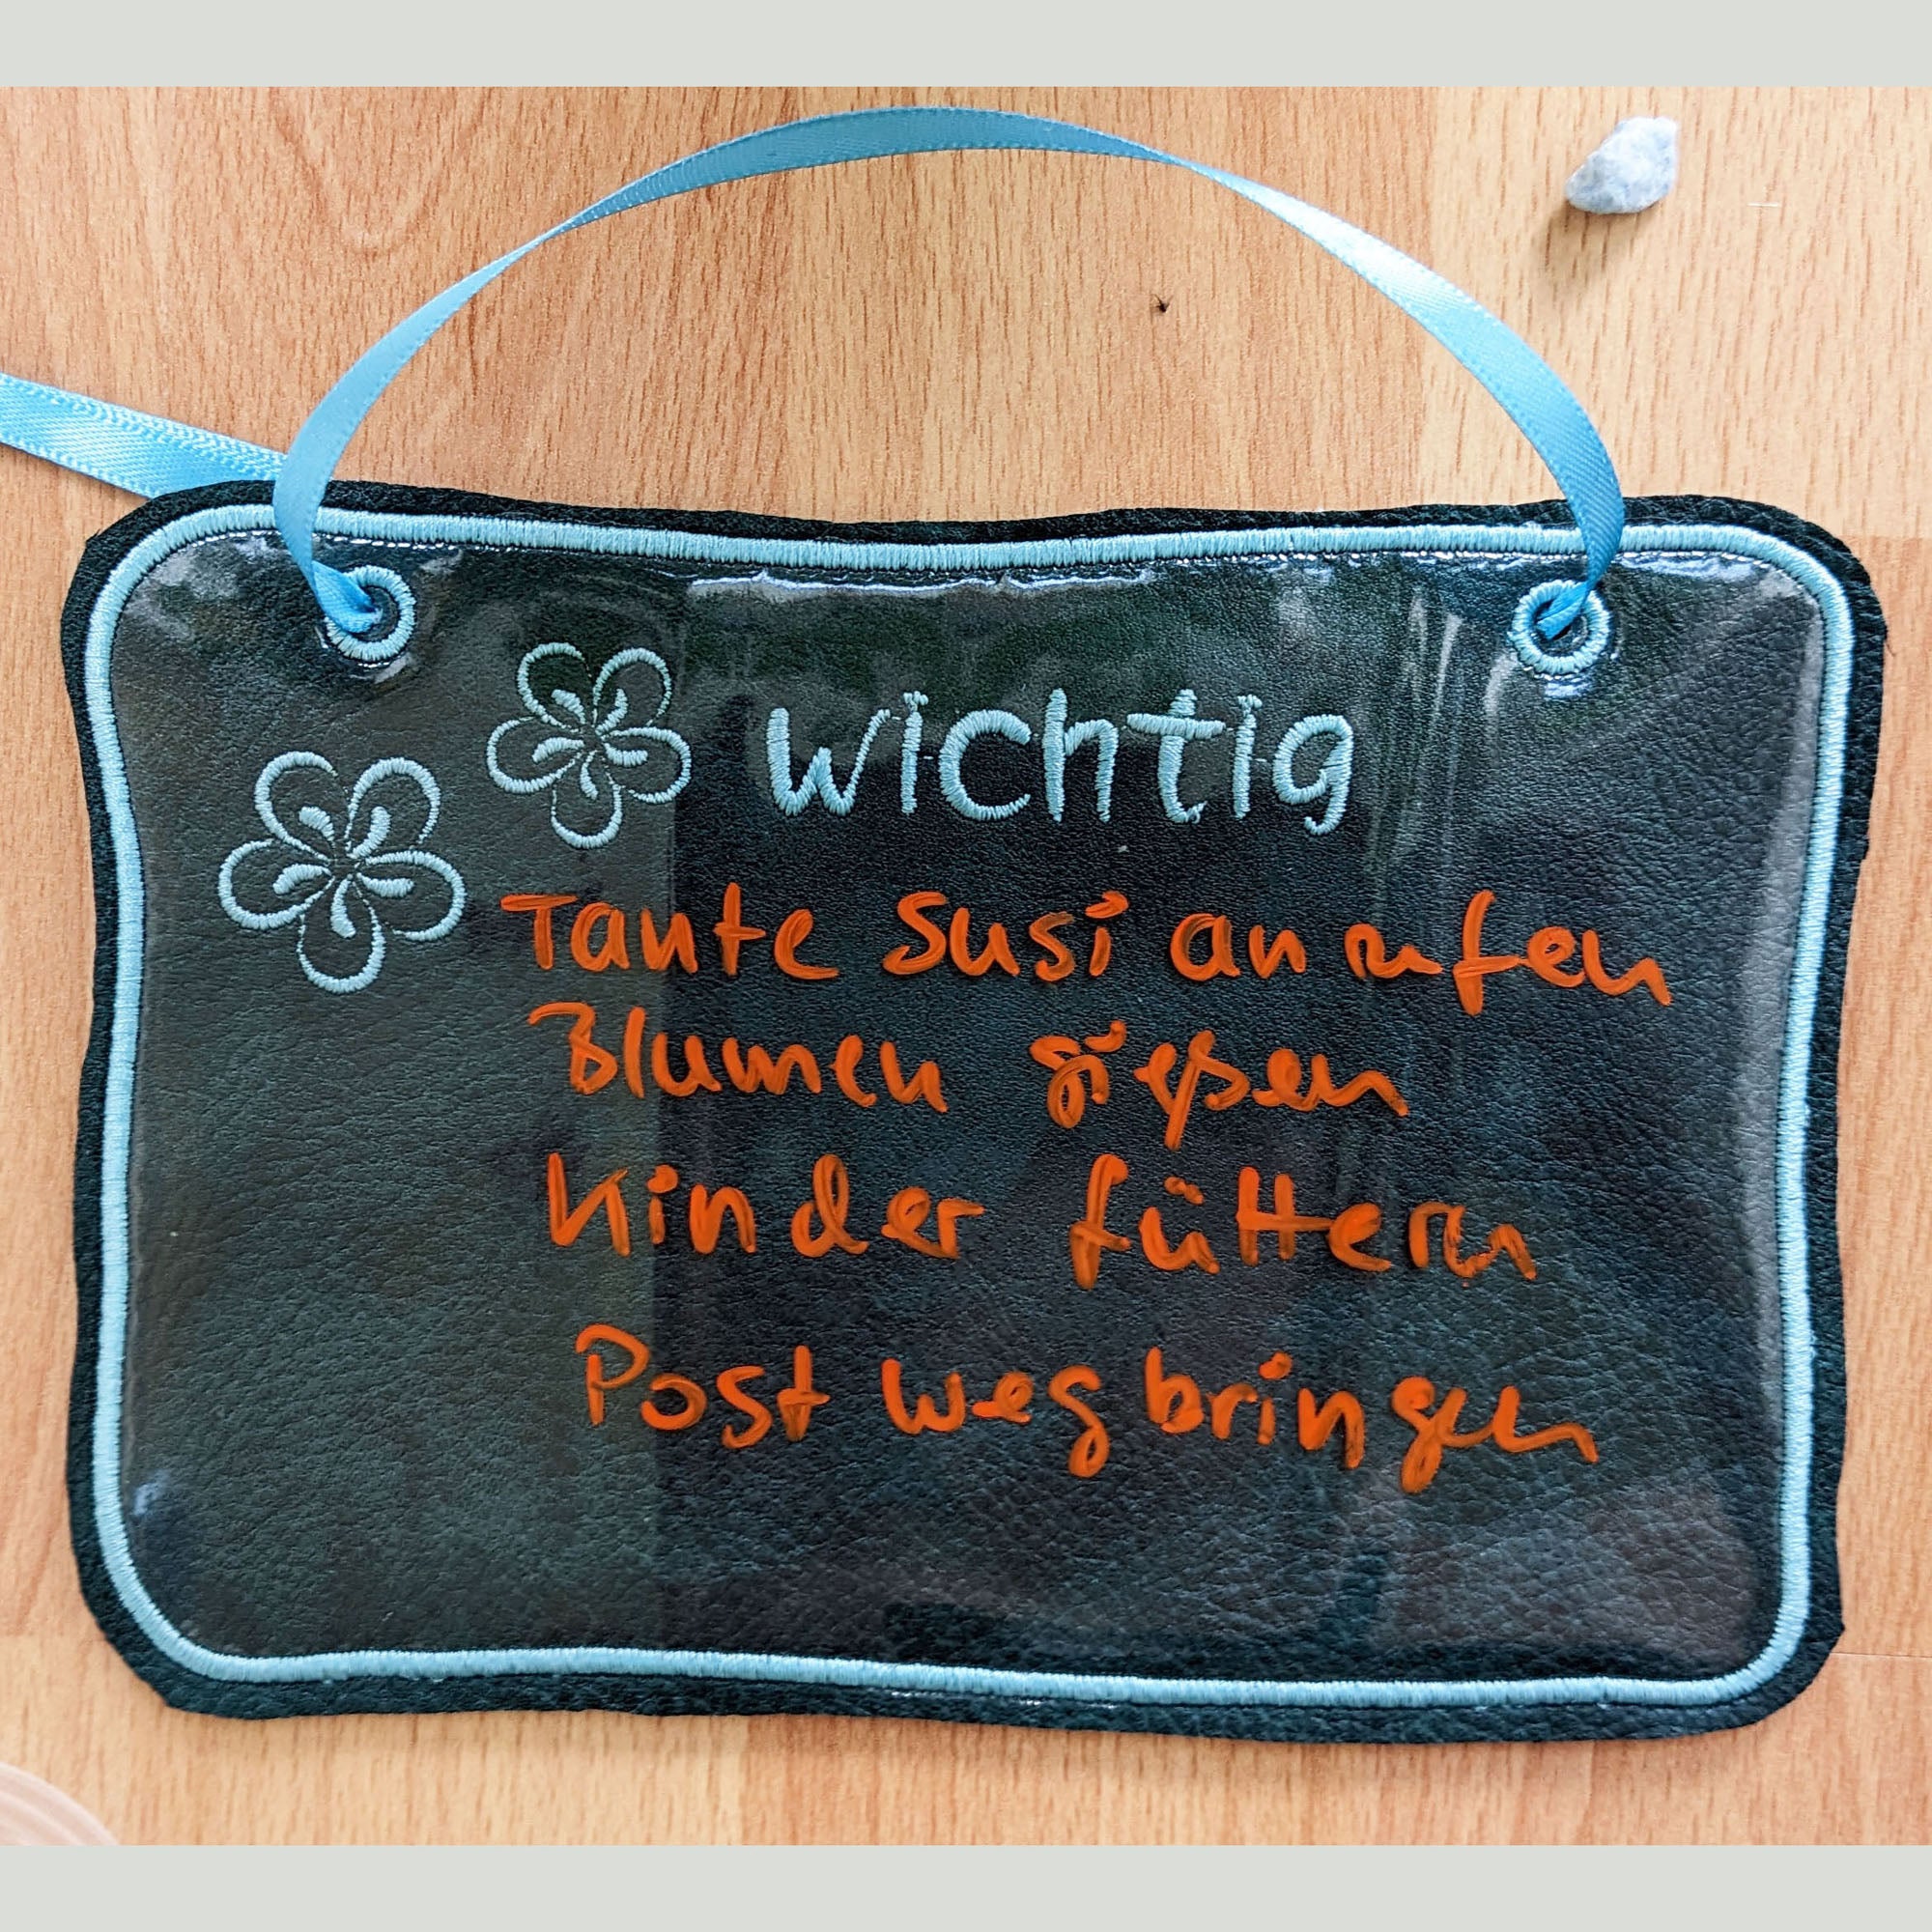 wichtig
Tante Susi anrufen
Blumen gießen
Kinder füttern
Post wegbringen